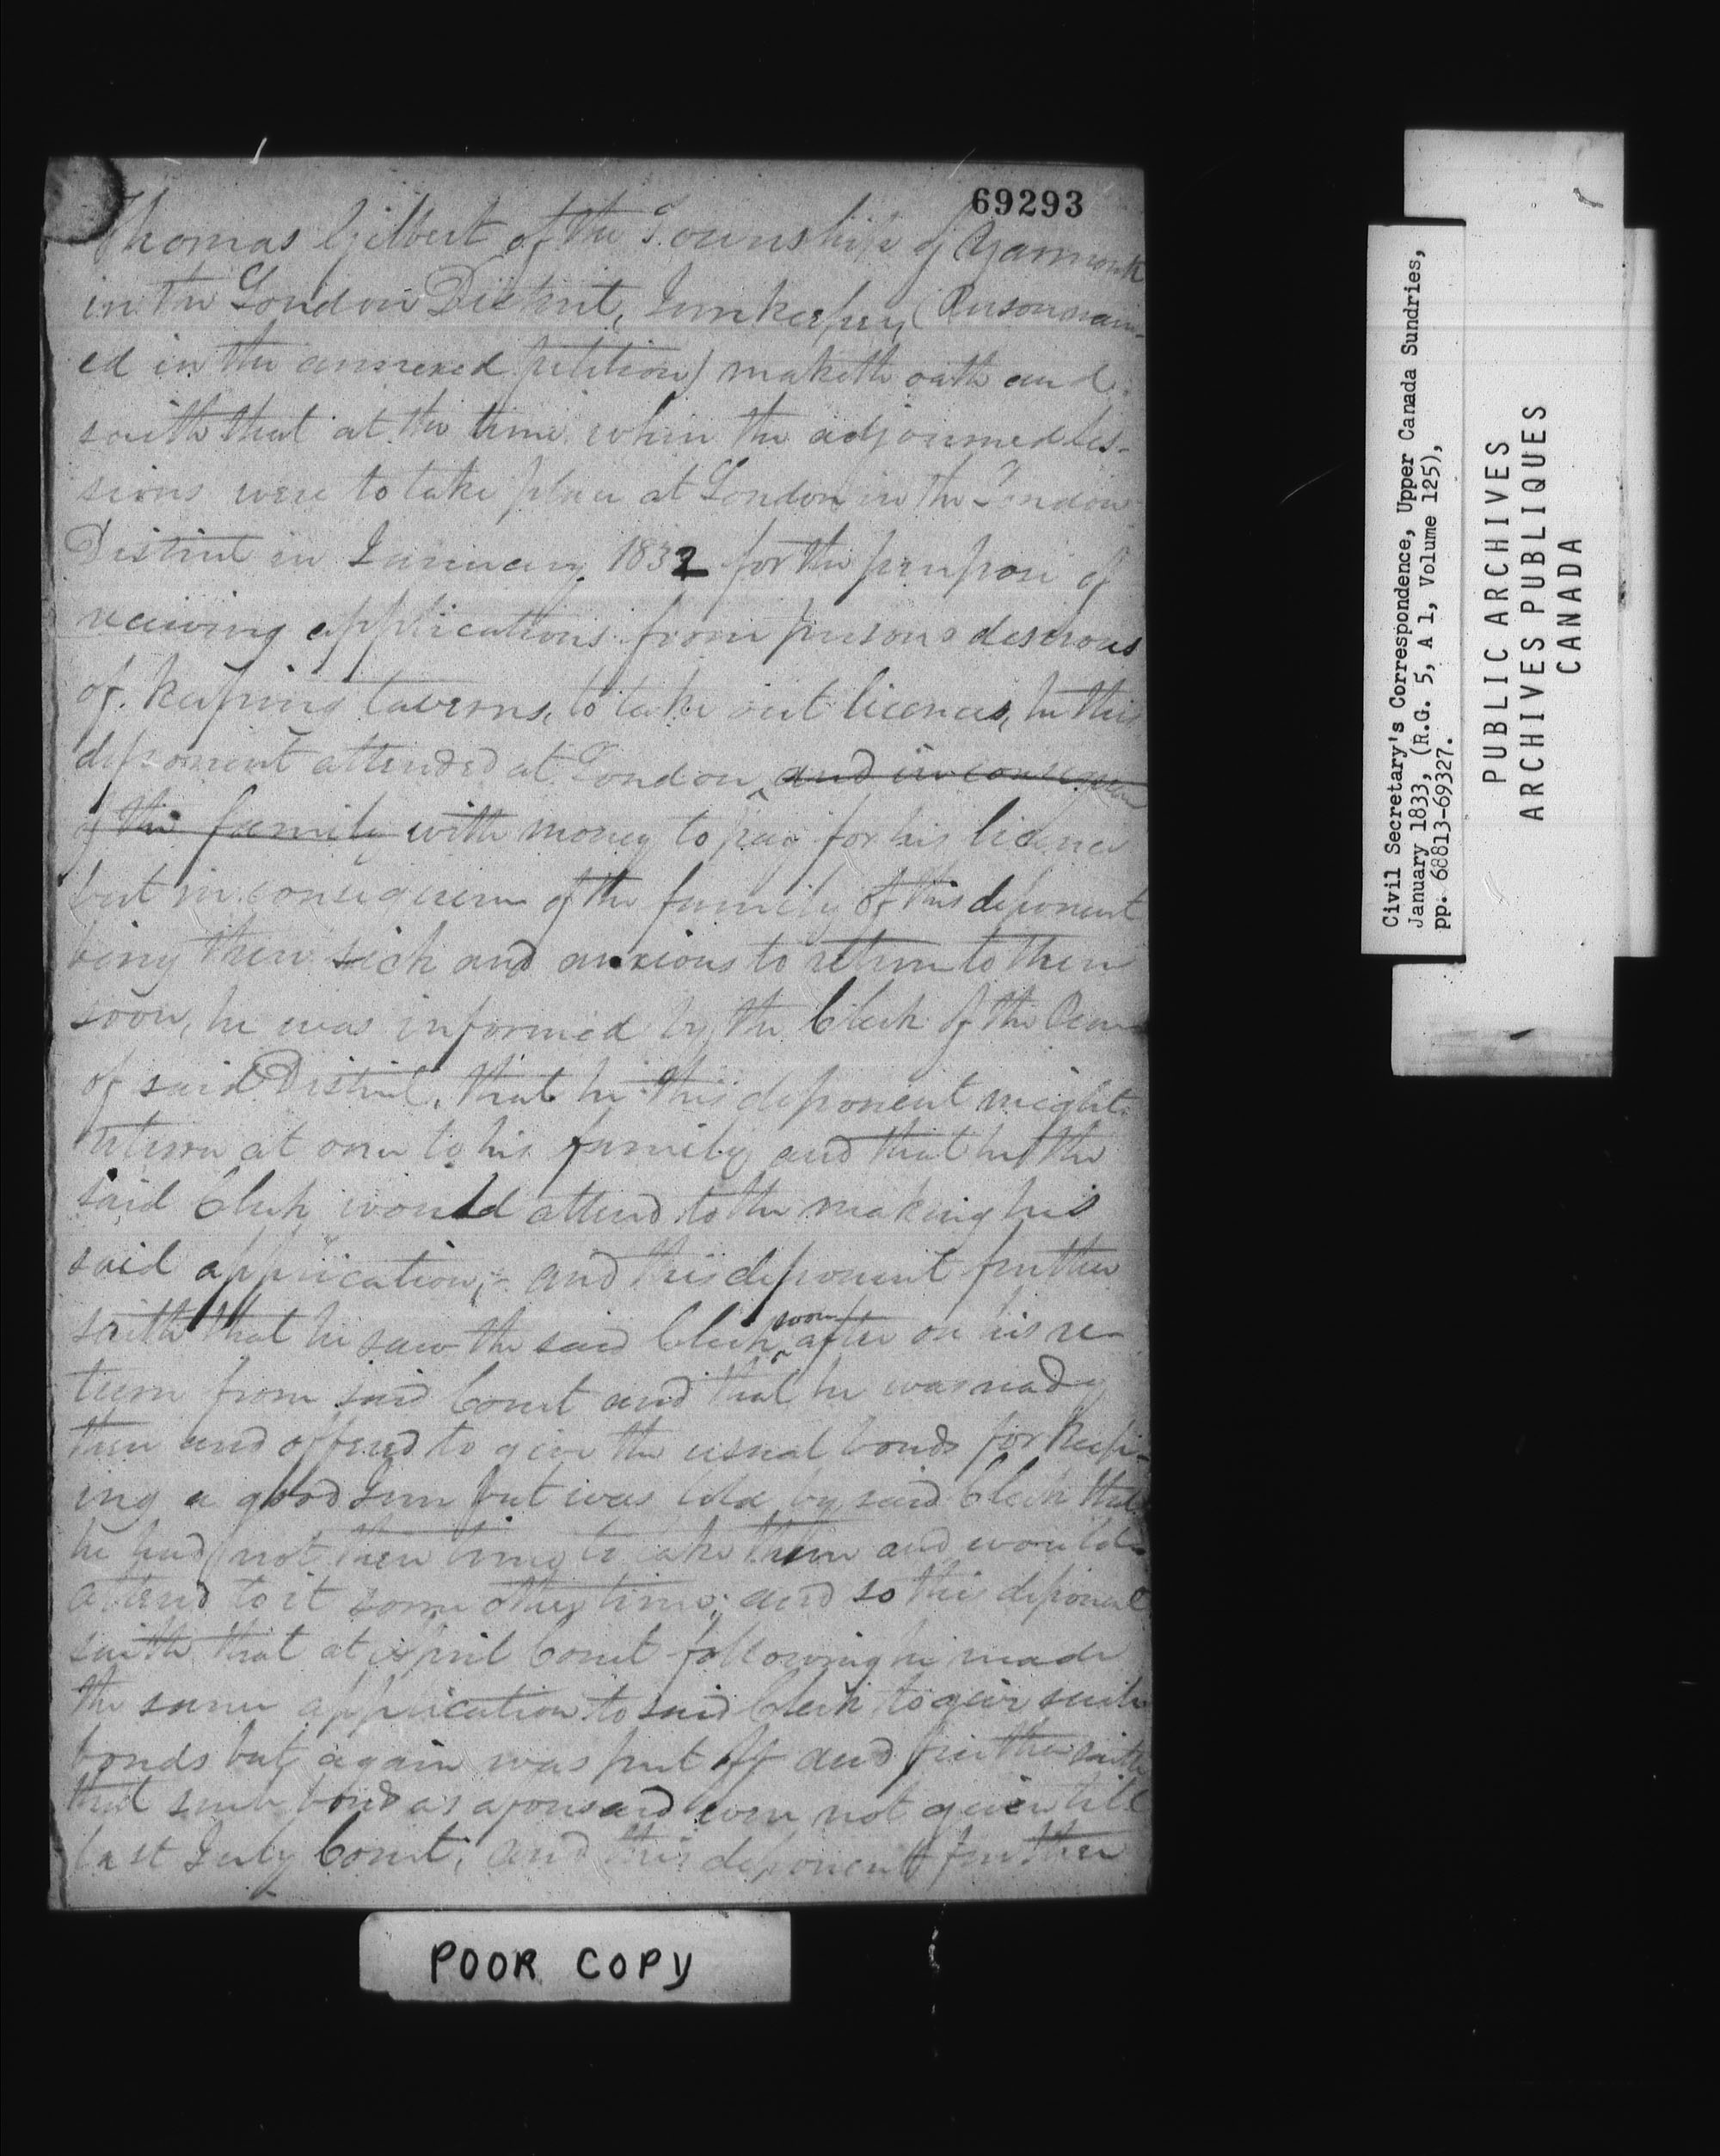 69293
Thomas Gilbert of the Township of Yarmouth
in the London District, Innkeeper, (Person nam-
ed in the annexed petition) maketh oath and
saith that at the time when the adjourned Ses-
sions were to take place at London in the London
District in January 1832 for the purpose of
receiving applications from persons desirous
of keeping taverns, to take out licences, he this
deponent attended at London, and in consequence
of the family with money to pay for his licence
but in consequence of the family of this deponent
being then sick and anxious to return to them
soon, he was informed by the Clerk of the Peace
of said District, that he this deponent might
return at once to his family and that he the
said Clerk would attend to the making his
said application; - and this deponent further
saith that he saw the said Clerk soon after on his re-
turn from said Court and that he was ready
then and offered to give the usual bonds for keep-
ing a good Inn but was told by said Clerk that
he had not then time to take them and would
attend to it some other time; and so this deponent
saith that at April Court following he made
the same application to said Clerk to give such
bonds but again was put off and further saith
that such bonds as aforesaid were not given till
last July Court; and this deponent further
POOR COPY
Civil Secretary's Correspondence, Upper Canada Sundries,
January 1833, (R.G. 5, A 1, Volume 125),
pp. 68813-69327.
PUBLIC ARCHIVES
ARCHIVES PUBLIQUES
CANADA